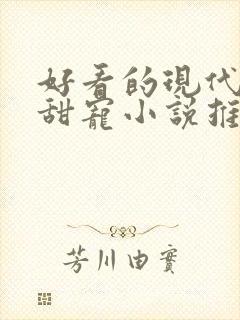 好看的現代
甜寵小說推
芳川由實